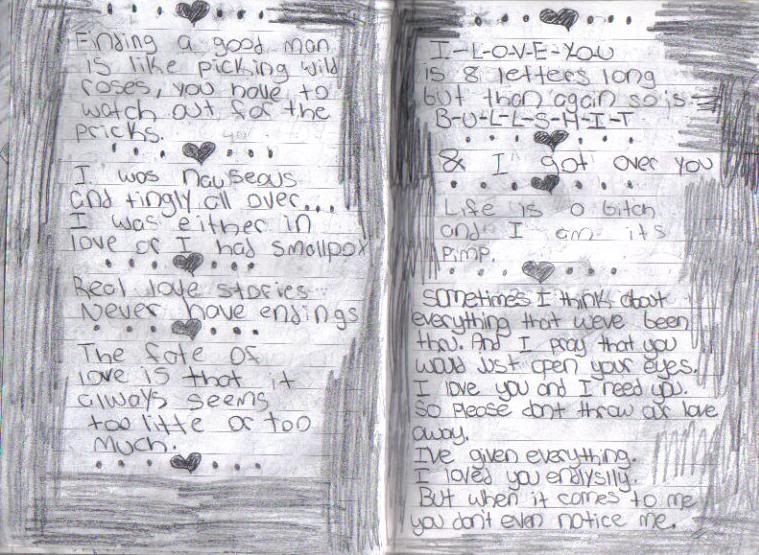 Finding a good man
is like picking wild
roses, you have to
watch out for the
pricks.
I was nauseous
and tingly all over...
I was either in
love or I had smallpox
Real love stories
Never have endings
The fate of
love is that it
always seems
too little or too
much.
I-L-O-V-E-YOU
is 8 letters long
but than again so is
B-U-L-L-S-H-I-T
& I got over you
Life is a bitch
and I am its
pimp.
Sometimes I think about
everything that weve been
thru. And I pray that you
would just open your eyes.
I love you and I need you.
So please don't throw our love
away.
I've given everything.
I loved you endlyslly.
But when it comes to me
you don't even notice me.